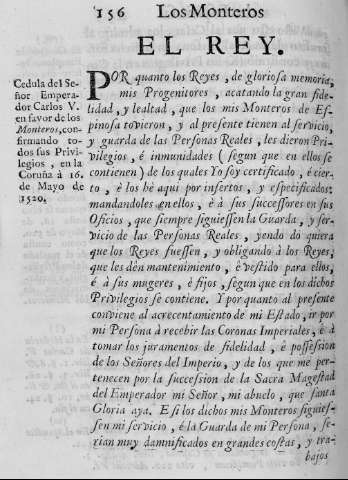 156 Los Monteros
EL REY.
Cedula del Se-
ñor Empera-
dor Carlos V.
en favor de los
Monteros, con-
firmando to-
dos sus Privi-
legios, en la
Coruña à 16.
de Mayo de
1520.
POR quanto los Reyes, de gloriosa memoria,
mis Progenitores, acatando la gran fide-
lidad, y lealtad, que los mis Monteros de Es-
pinosa tovieron, y al presente tienen al servicio,
y guarda de las Personas Reales, les dieron Pri-
vilegios, é inmunidades (segun que en ellos se
contienen) de los quales Yo soy certificado, é cier-
to, è los hè aqui por insertos, y especificados:
mandandoles en ellos, è à sus successores en sus
Oficios, que siempre siguiessen la Guarda, y ser-
vicio de las Personas Reales, yendo do quiera
que los Reyes fuessen, y obligando à los Reyes,
que les dèn mantenimiento, é vestido para ellos,
é à sus mugeres, è fijos, segun que en los dichos
Privilegios se contiene. Y por quanto al presente
conviene al acrecentamiento de mi Estado, ir por
mi Persona à recebir las Coronas Imperiales, è à
tomar los juramentos de fidelidad, è possession
de los Señores del Imperio, y de los que me per-
tenecen por la succession de la Sacra Magestad
del Emperador mi Señor, mi abuelo, que santa
Gloria aya. E si los dichos mis Monteros siguies-
sen mi servicio, è la Guarda de mi Persona, se-
rian muy damnificados en grandes costas, y tra-
bajos